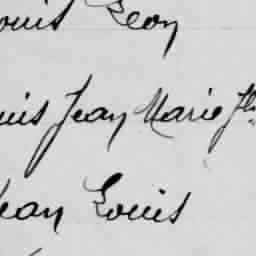 ouis Léon
uis Jean Marie fls
Jean Louis